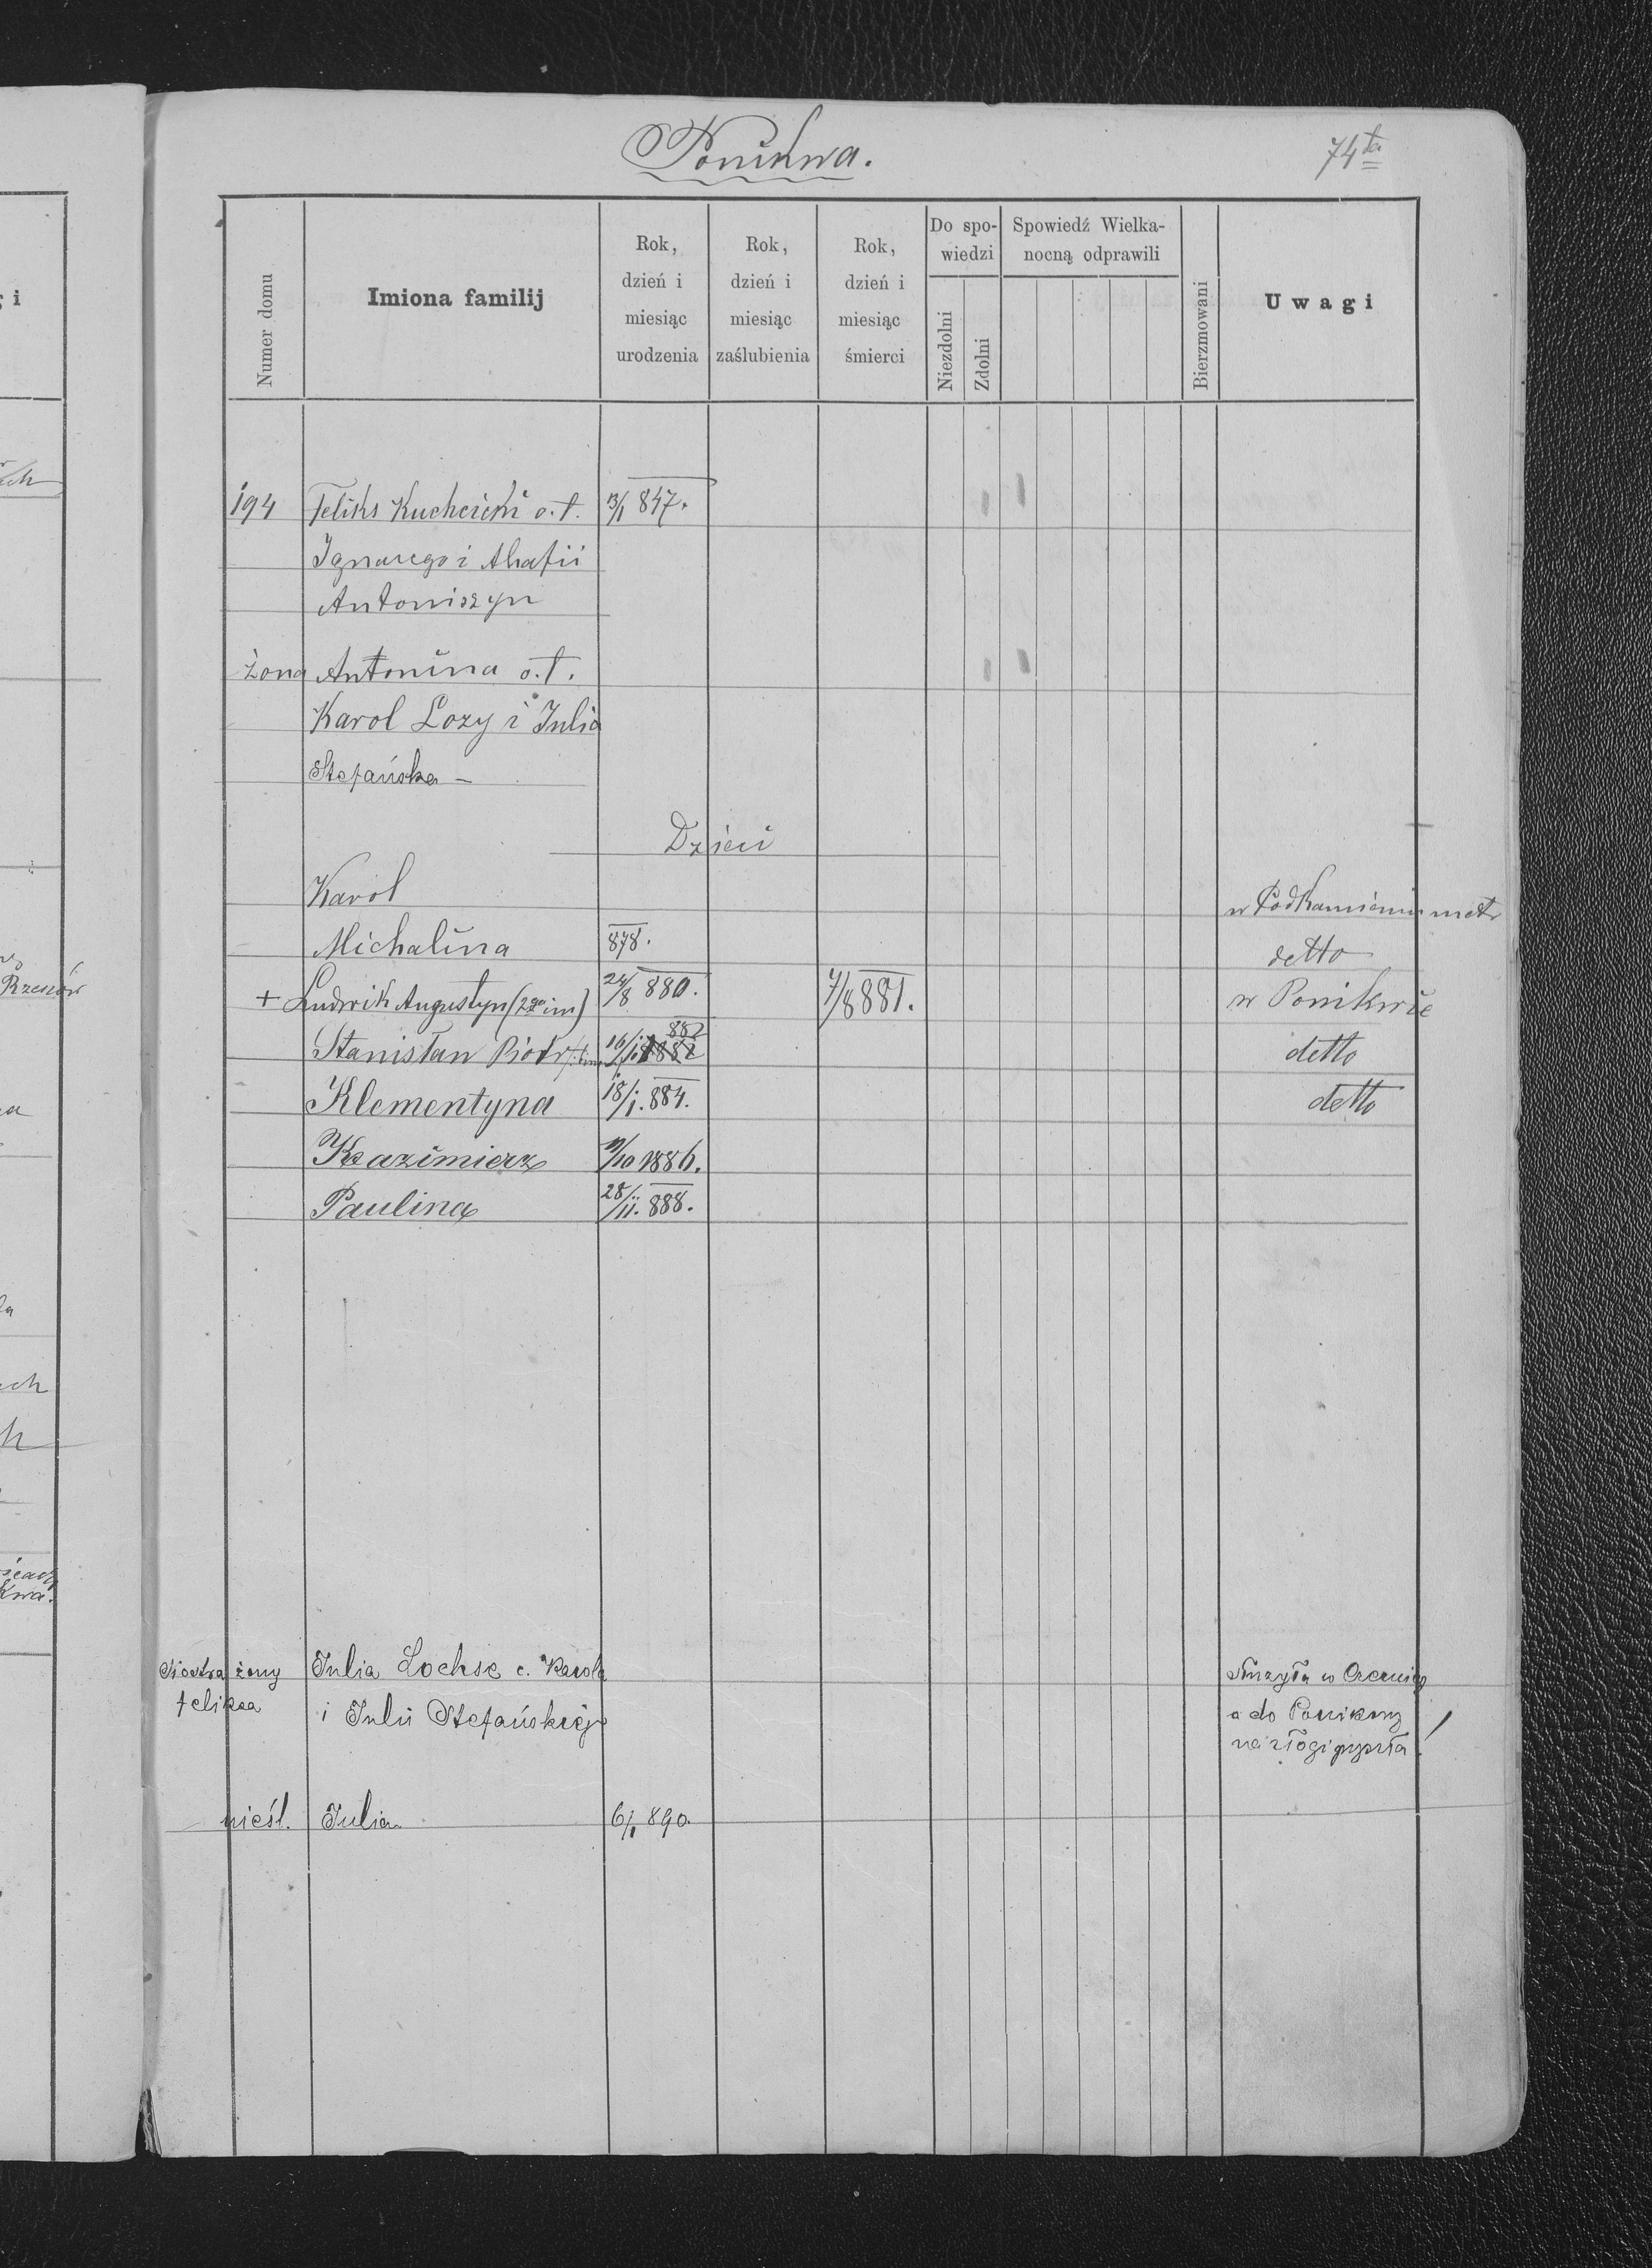 Ponikwa.
74ta
Numer domu
Imiona familij
Rok, dzień i miesiąc urodzenia
Rok, dzień i miesiąc zaślubienia
Rok, dzień i miesiąc śmierci
Do spowiedzi
Niezdolni
Zdolni
Spowiedź Wielkanocną odprawili
Bierzmowani
Uwagi
194 Feliks Kucherski o.t. 13/1 847.
Ignacego i Ahafii
Antoniszyn
żona Antonina o.t.
Karol Lozy i Julia
Stefańska –
Dzieci
Karol w Podkamieniu metr
Michalina 878. detto
+ Ludwik Augustyn (2go im) 24/8 880. 7/8 881. w Ponikwie
Stanisław Piotr 16/1 882 detto
Klementyna 18/1. 884. detto
Kazimierz 1886.
Paulina 28/11. 888.
Siostra żony Julia Lochse c. Karola
Feliksa i Julii Stefańskiej
a do Ponikwy
nieśl. Julia 6/1 890.